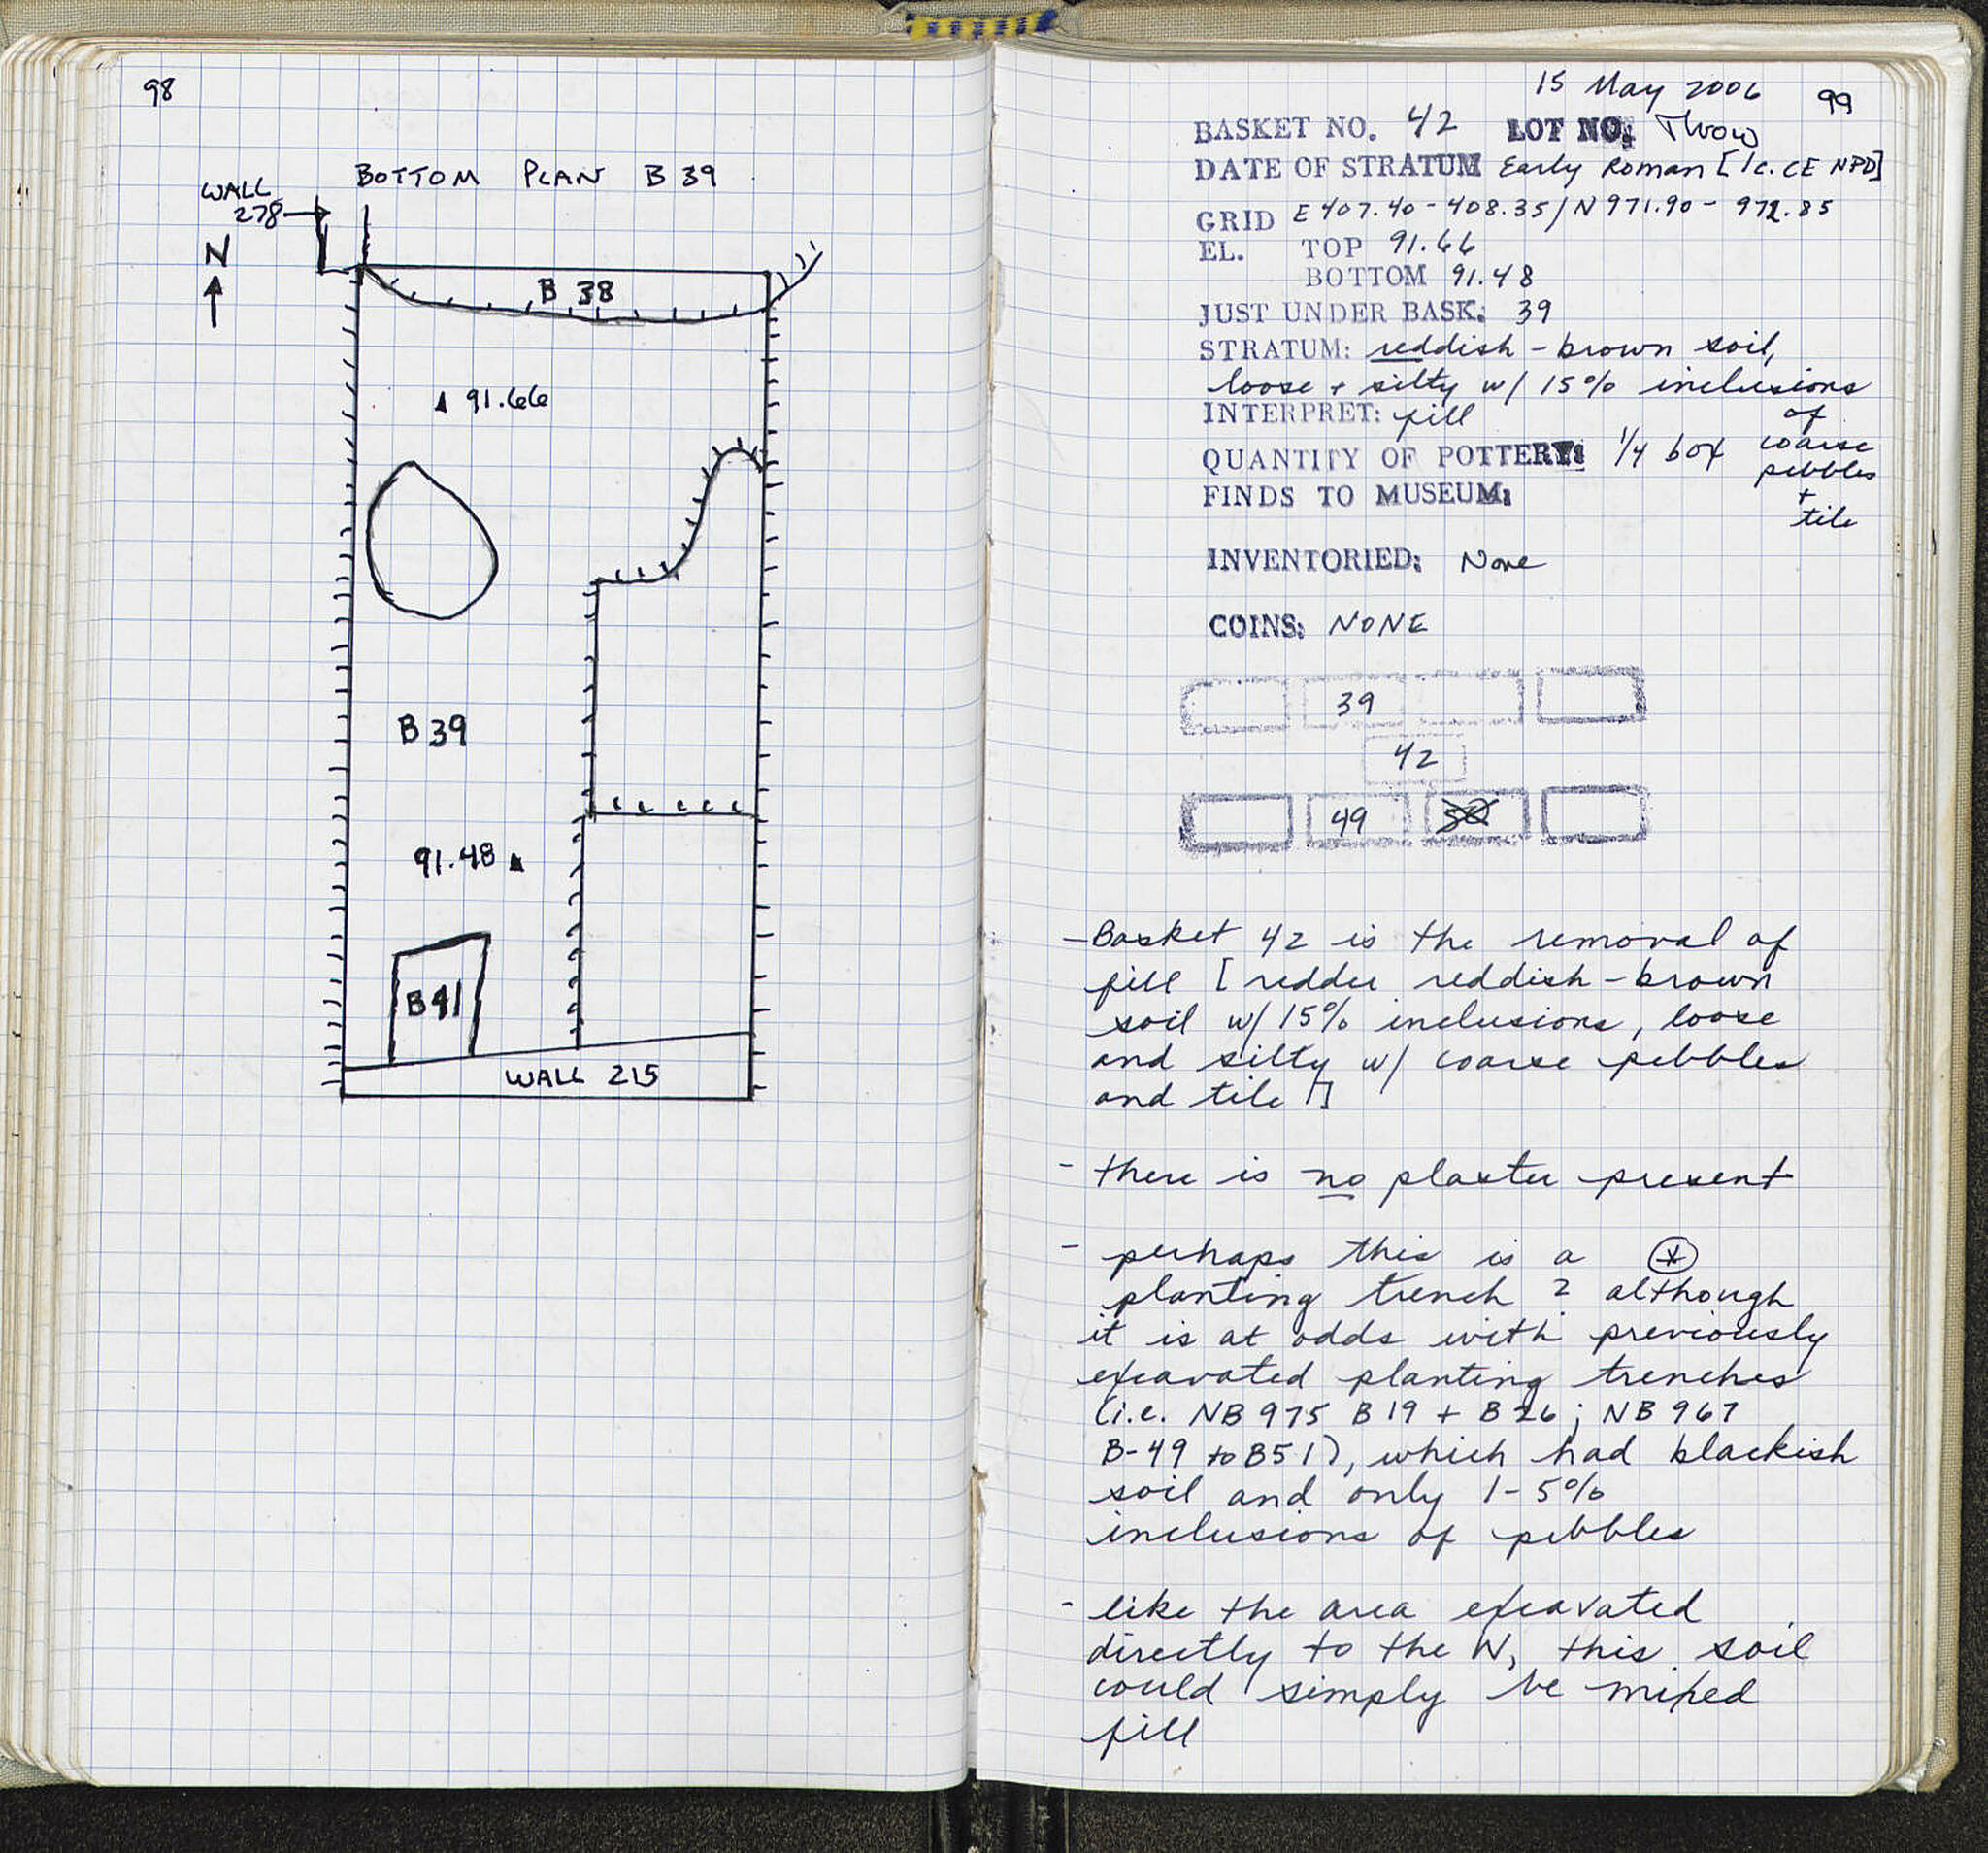 98
BOTTOM PLAN B 39
WALL
278
N
B 38
91.66
B 39
91.48
B41
WALL 215
15 May 2006
99
BASKET NO. 42 LOT NO: Throw
DATE OF STRATUM Early Roman [1c. CE NPD]
GRID E 407.40-408.35/N 971.90 - 972.85
EL. TOP 91.66
BOTTOM 91.48
JUST UNDER BASK: 39
STRATUM: reddish-brown soil,
loose + silty w/ 15% inclusions
of
coarse
pebbles
+
tile
INTERPRET: fill
QUANTITY OF POTTERY: 1/4 box
FINDS TO MUSEUM:
INVENTORIED: None
COINS: NONE
39
42
49
- Basket 42 is the removal of
fill [redder reddish-brown
soil w/ 15% inclusions, loose
and silty w/ coarse pebbles
and tile]
- there is no plaster present
- perhaps this is a *
planting trench? although
it is at odds with previously
excavated planting trenches
(i.e. NB 975 B 19 + B 26; NB 967
B-49 to B51), which had blackish
soil and only 1-5%
inclusions of pebbles
- like the area excavated
directly to the W, this soil
could simply be mixed
fill